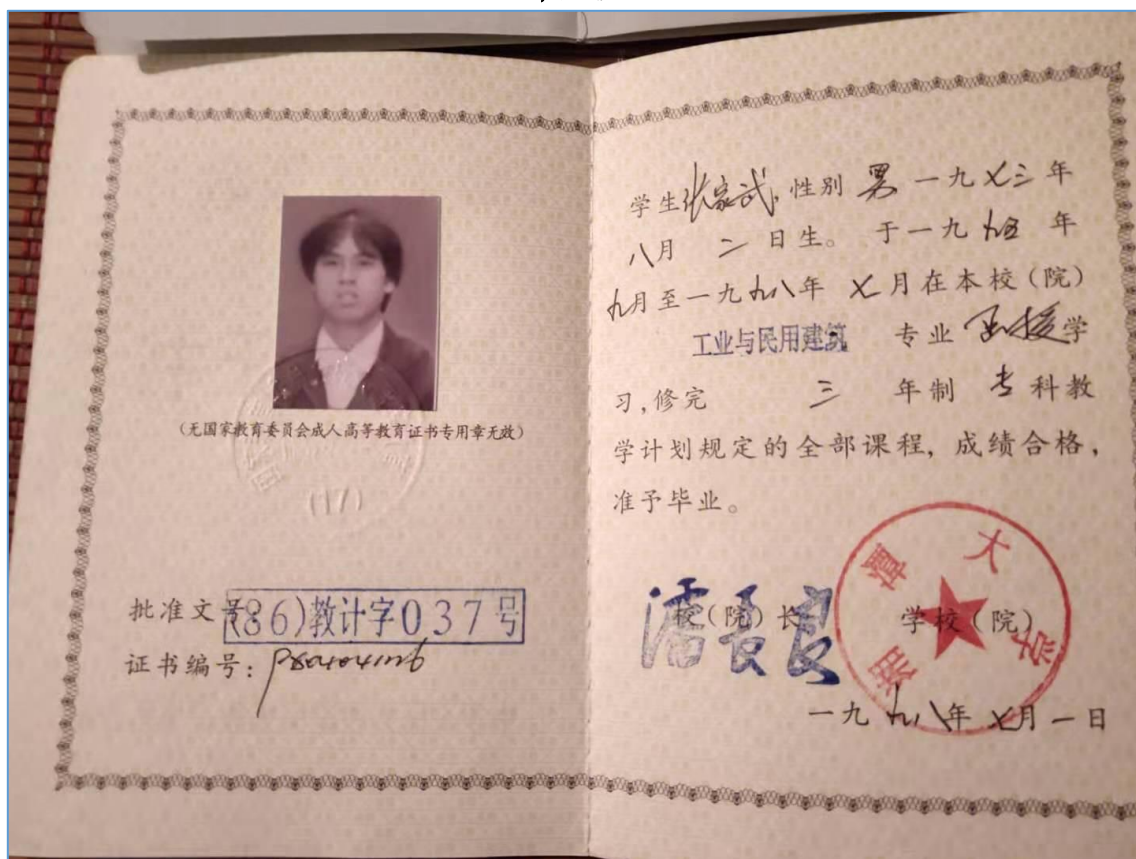 (无国家教育委员会成人高等教育证书专用章无效)
(17)
批准文号:(86)教计字037号
证书编号:
学生张家武 性别 男 一九七三年
八月 二 日生。 于一九九五 年
九月至一九九八年 七月在本校(院)
工业与民用建筑 专业 函授学
习,修完 三 年制 专科教
学计划规定的全部课程, 成绩合格,
准予毕业。
校(院)长 学校(院)
湘潭大学
一九九八年 七月一日